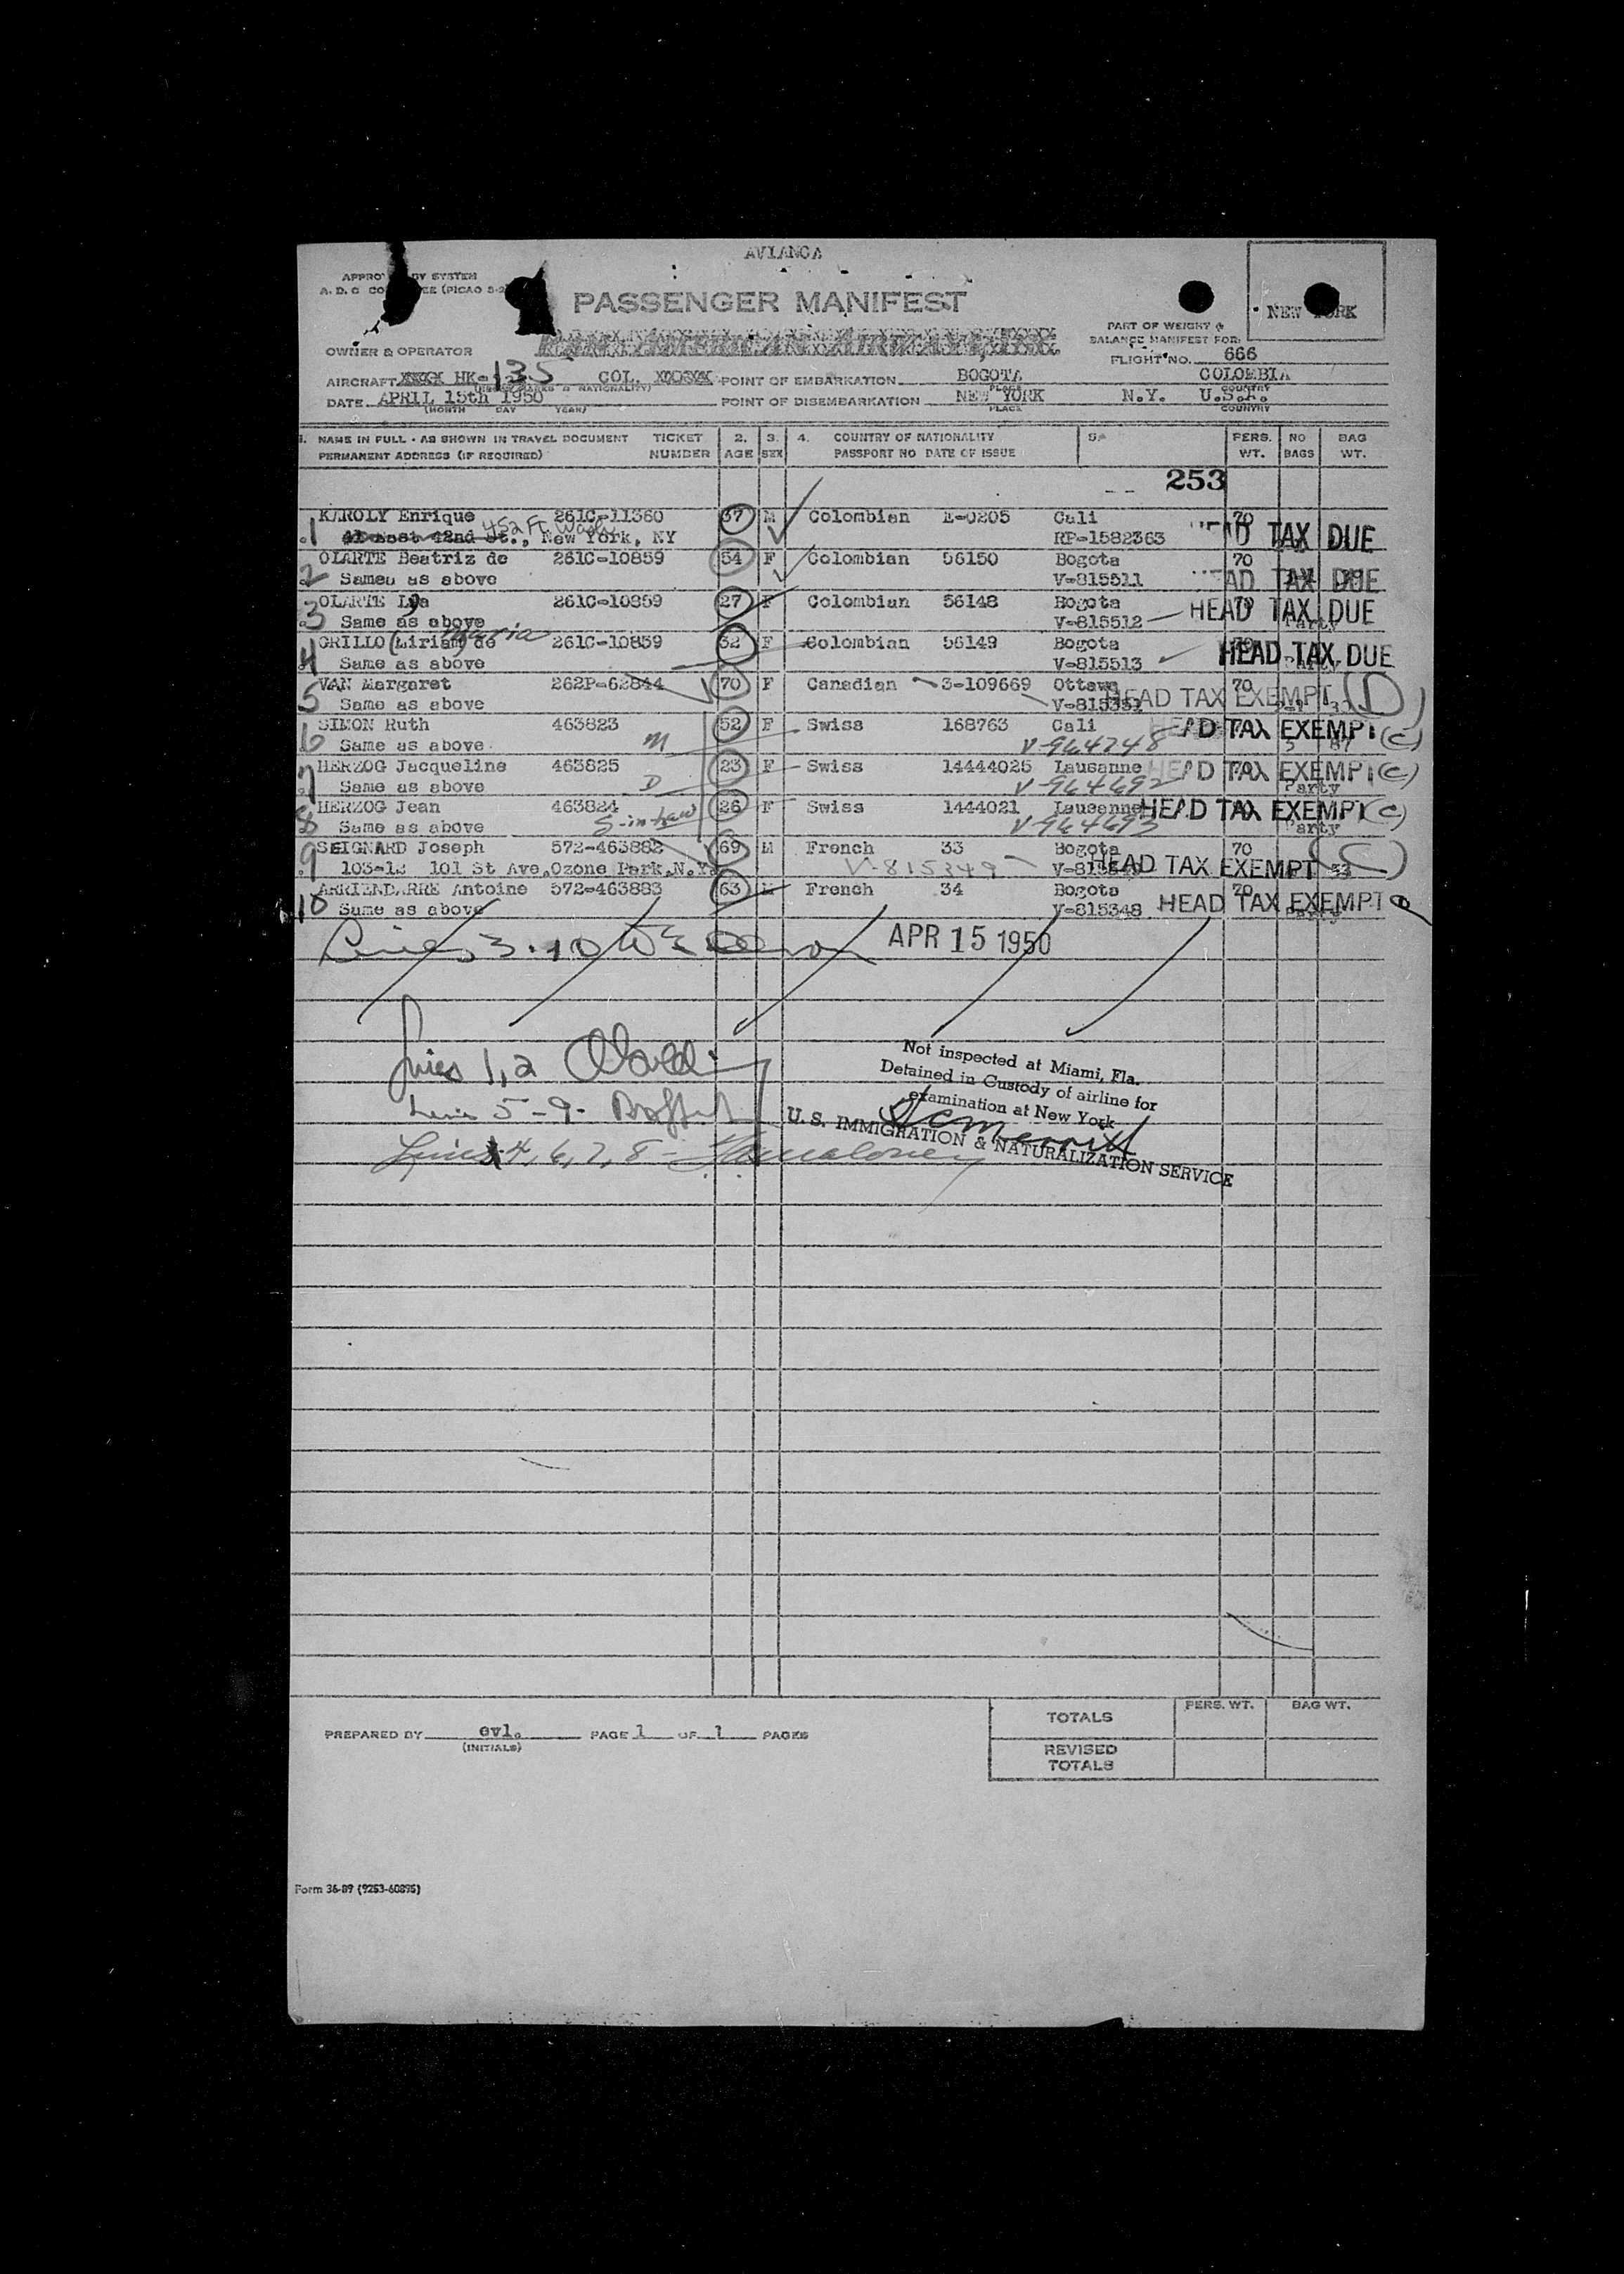 AVIANCA
APPRO BY SYSTEM
A. D. C CO EE (PICAO S-2)
PASSENGER MANIFEST
NEW YORK
OWNER & OPERATOR
PART OF WEIGHT &
BALANCE MANIFEST FOR:
FLIGHT NO. 666
AIRCRAFT HK-135 COL. POINT OF EMBARKATION BOGOTA COLOMBIA
PLACE COUNTRY
DATE APRIL 15th 1950 POINT OF DISEMBARKATION NEW YORK N.Y. U.S.A.
(MONTH DAY YEAR) PLACE COUNTRY
1. NAME IN FULL - AS SHOWN IN TRAVEL DOCUMENT TICKET 2. 3. 4. COUNTRY OF NATIONALITY 5. PERS. NO BAG
PERMANENT ADDRESS (IF REQUIRED) NUMBER AGE SEX PASSPORT NO DATE OF ISSUE WT. BAGS WT.
253
KAROLY Enrique 261C-11360 37 M Colombian E-0205 Cali 70
1 452 Ft. Wash. 42nd st., New York, NY RP-1582363 HEAD TAX DUE
OLARTE Beatriz de 261C-10859 54 F Colombian 56150 Bogota 70
2 Sameu as above V-815511 HEAD TAX DUE
OLARTE 261C-10859 27 F Colombian 56148 Bogota 70
3 Same as above V-815512 HEAD TAX DUE
GRILLO (Liriam) de Maria 261C-10859 32 F Colombian 56149 Bogota
4 Same as above V-815513 HEAD TAX DUE
VAN Margaret 262P-62844 70 F Canadian 3-109669 Ottawa 70
5 Same as above V-815351 HEAD TAX EXEMPT (D)
SIMON Ruth 463823 52 F Swiss 168763 Cali
6 Same as above M V-964748 HEAD TAX EXEMPT (C)
HERZOG Jacqueline 463825 23 F Swiss 14444025 Lausanne
7 Same as above D V-964692 HEAD TAX EXEMPT (C) Party
HERZOG Jean 463824 26 F Swiss 1444021 Lausanne
8 Same as above S-in-law V-964693 HEAD TAX EXEMPT (C) Party
SEIGNARD Joseph 572-463882 69 M French 33 Bogota 70
9 103-12 101 St Ave, Ozone Park, N.Y. V-815349 HEAD TAX EXEMPT (C)
ARRIENDARRE Antoine 572-463883 63 M French 34 Bogota 70
10 Same as above V-815348 HEAD TAX EXEMPT
Lines 3.10 APR 15 1950
Lines 1, 2
Lines 5-9-
Lines 4, 6, 7, 8 -
Not inspected at Miami, Fla.
Detained in Custody of airline for
examination at New York
U. S. IMMIGRATION & NATURALIZATION SERVICE
TOTALS PERS. WT. BAG WT.
PREPARED BY evl. PAGE 1 OF 1 PAGES
(INITIALS)
REVISED
TOTALS
Form 36-89 (9253-60895)